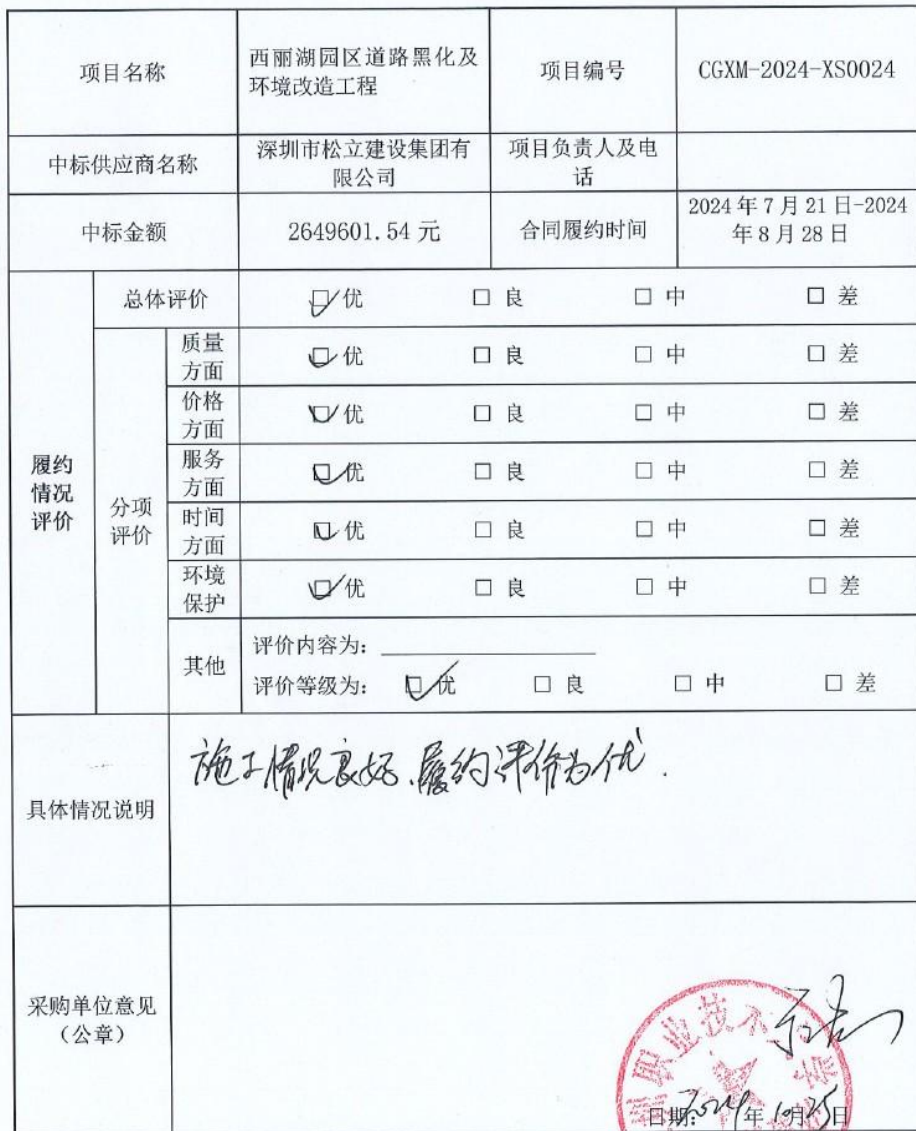 项目名称 西丽湖园区道路黑化及 项目编号 CGXM-2024-XS0024
环境改造工程
中标供应商名称 深圳市松立建设集团有 项目负责人及电
限公司 话
中标金额 2649601.54 元 合同履约时间 2024 年 7 月 21 日-2024
年 8 月 28 日
履约
情况
评价
总体评价 ☑优 □ 良 □ 中 □ 差
分项
评价
质量
方面 ☑优 □ 良 □ 中 □ 差
价格
方面 ☑优 □ 良 □ 中 □ 差
服务
方面 ☑优 □ 良 □ 中 □ 差
时间
方面 ☑优 □ 良 □ 中 □ 差
环境
保护 ☑优 □ 良 □ 中 □ 差
其他 评价内容为:
评价等级为: ☑优 □ 良 □ 中 □ 差
具体情况说明 施工情况良好、履约评价为优.
采购单位意见
(公章)
职业技术 学
日期: 2024年 10月25日